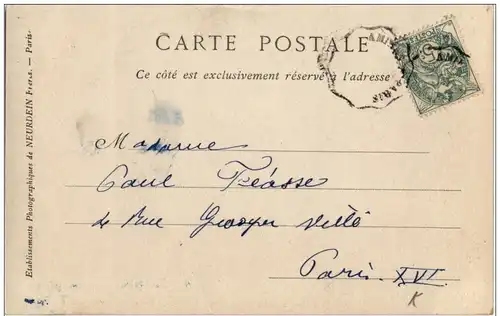 CARTE POSTALE
Ce côté est exclusivement réservé à l'adresse
Etablissements Photographiques de NEURDEIN Frères. — Paris
AMIENS
PARIS
Madame
Paul Fréasse
4 Rue Gustave
Paris XVI
K